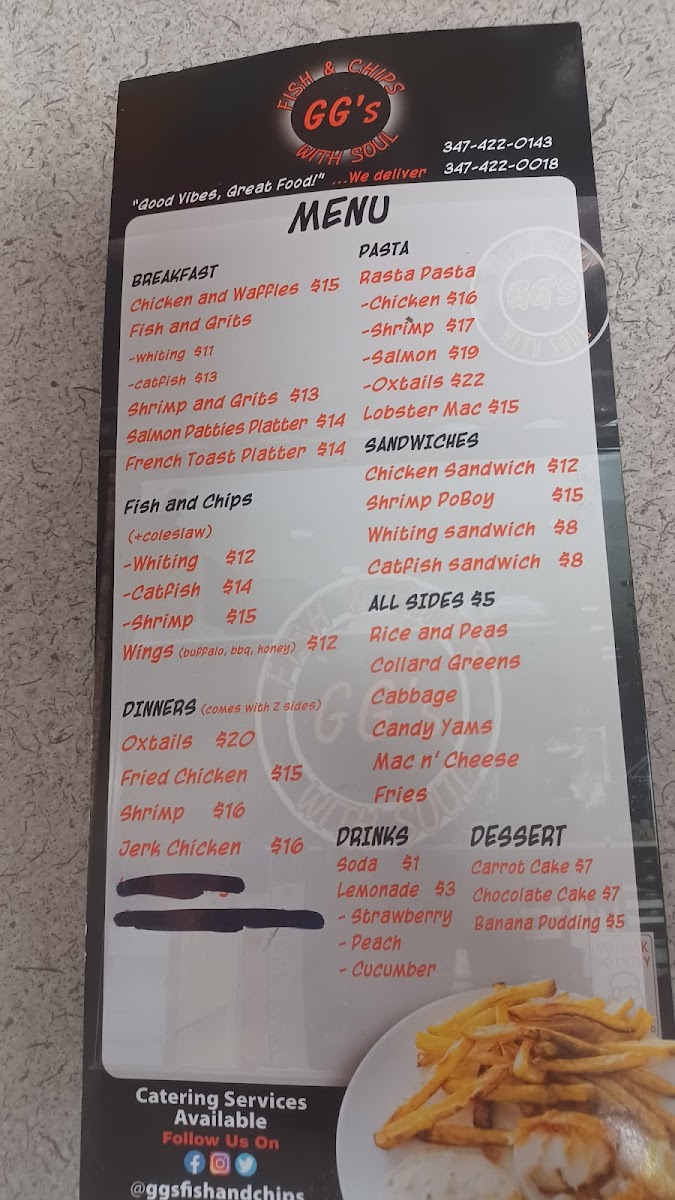 FISH & CHIPS
GG's
WITH SOUL
347-422-0143
347-422-0018
"Good Vibes, Great Food!" ...We deliver
MENU
BREAKFAST
Chicken and Waffles $15
Fish and Grits
-whiting $11
-catfish $13
Shrimp and Grits $13
Salmon Patties Platter $14
French Toast Platter $14
Fish and Chips
(+coleslaw)
-Whiting $12
-Catfish $14
-Shrimp $15
Wings (buffalo, bbq, honey) $12
DINNERS (comes with 2 sides)
Oxtails $20
Fried Chicken $15
Shrimp $16
Jerk Chicken $16
PASTA
Rasta Pasta
-Chicken $16
-Shrimp $17
-Salmon $19
-Oxtails $22
Lobster Mac $15
SANDWICHES
Chicken Sandwich $12
Shrimp PoBoy $15
Whiting sandwich $8
Catfish sandwich $8
ALL SIDES $5
Rice and Peas
Collard Greens
Cabbage
Candy Yams
Mac n' Cheese
Fries
DRINKS
Soda $1
Lemonade $3
- Strawberry
- Peach
- Cucumber
DESSERT
Carrot Cake $7
Chocolate Cake $7
Banana Pudding $5
GG's
WITH SOUL
FISH &
GG's
WITH SOUL
Catering Services
Available
Follow Us On
@ggsfishandchips